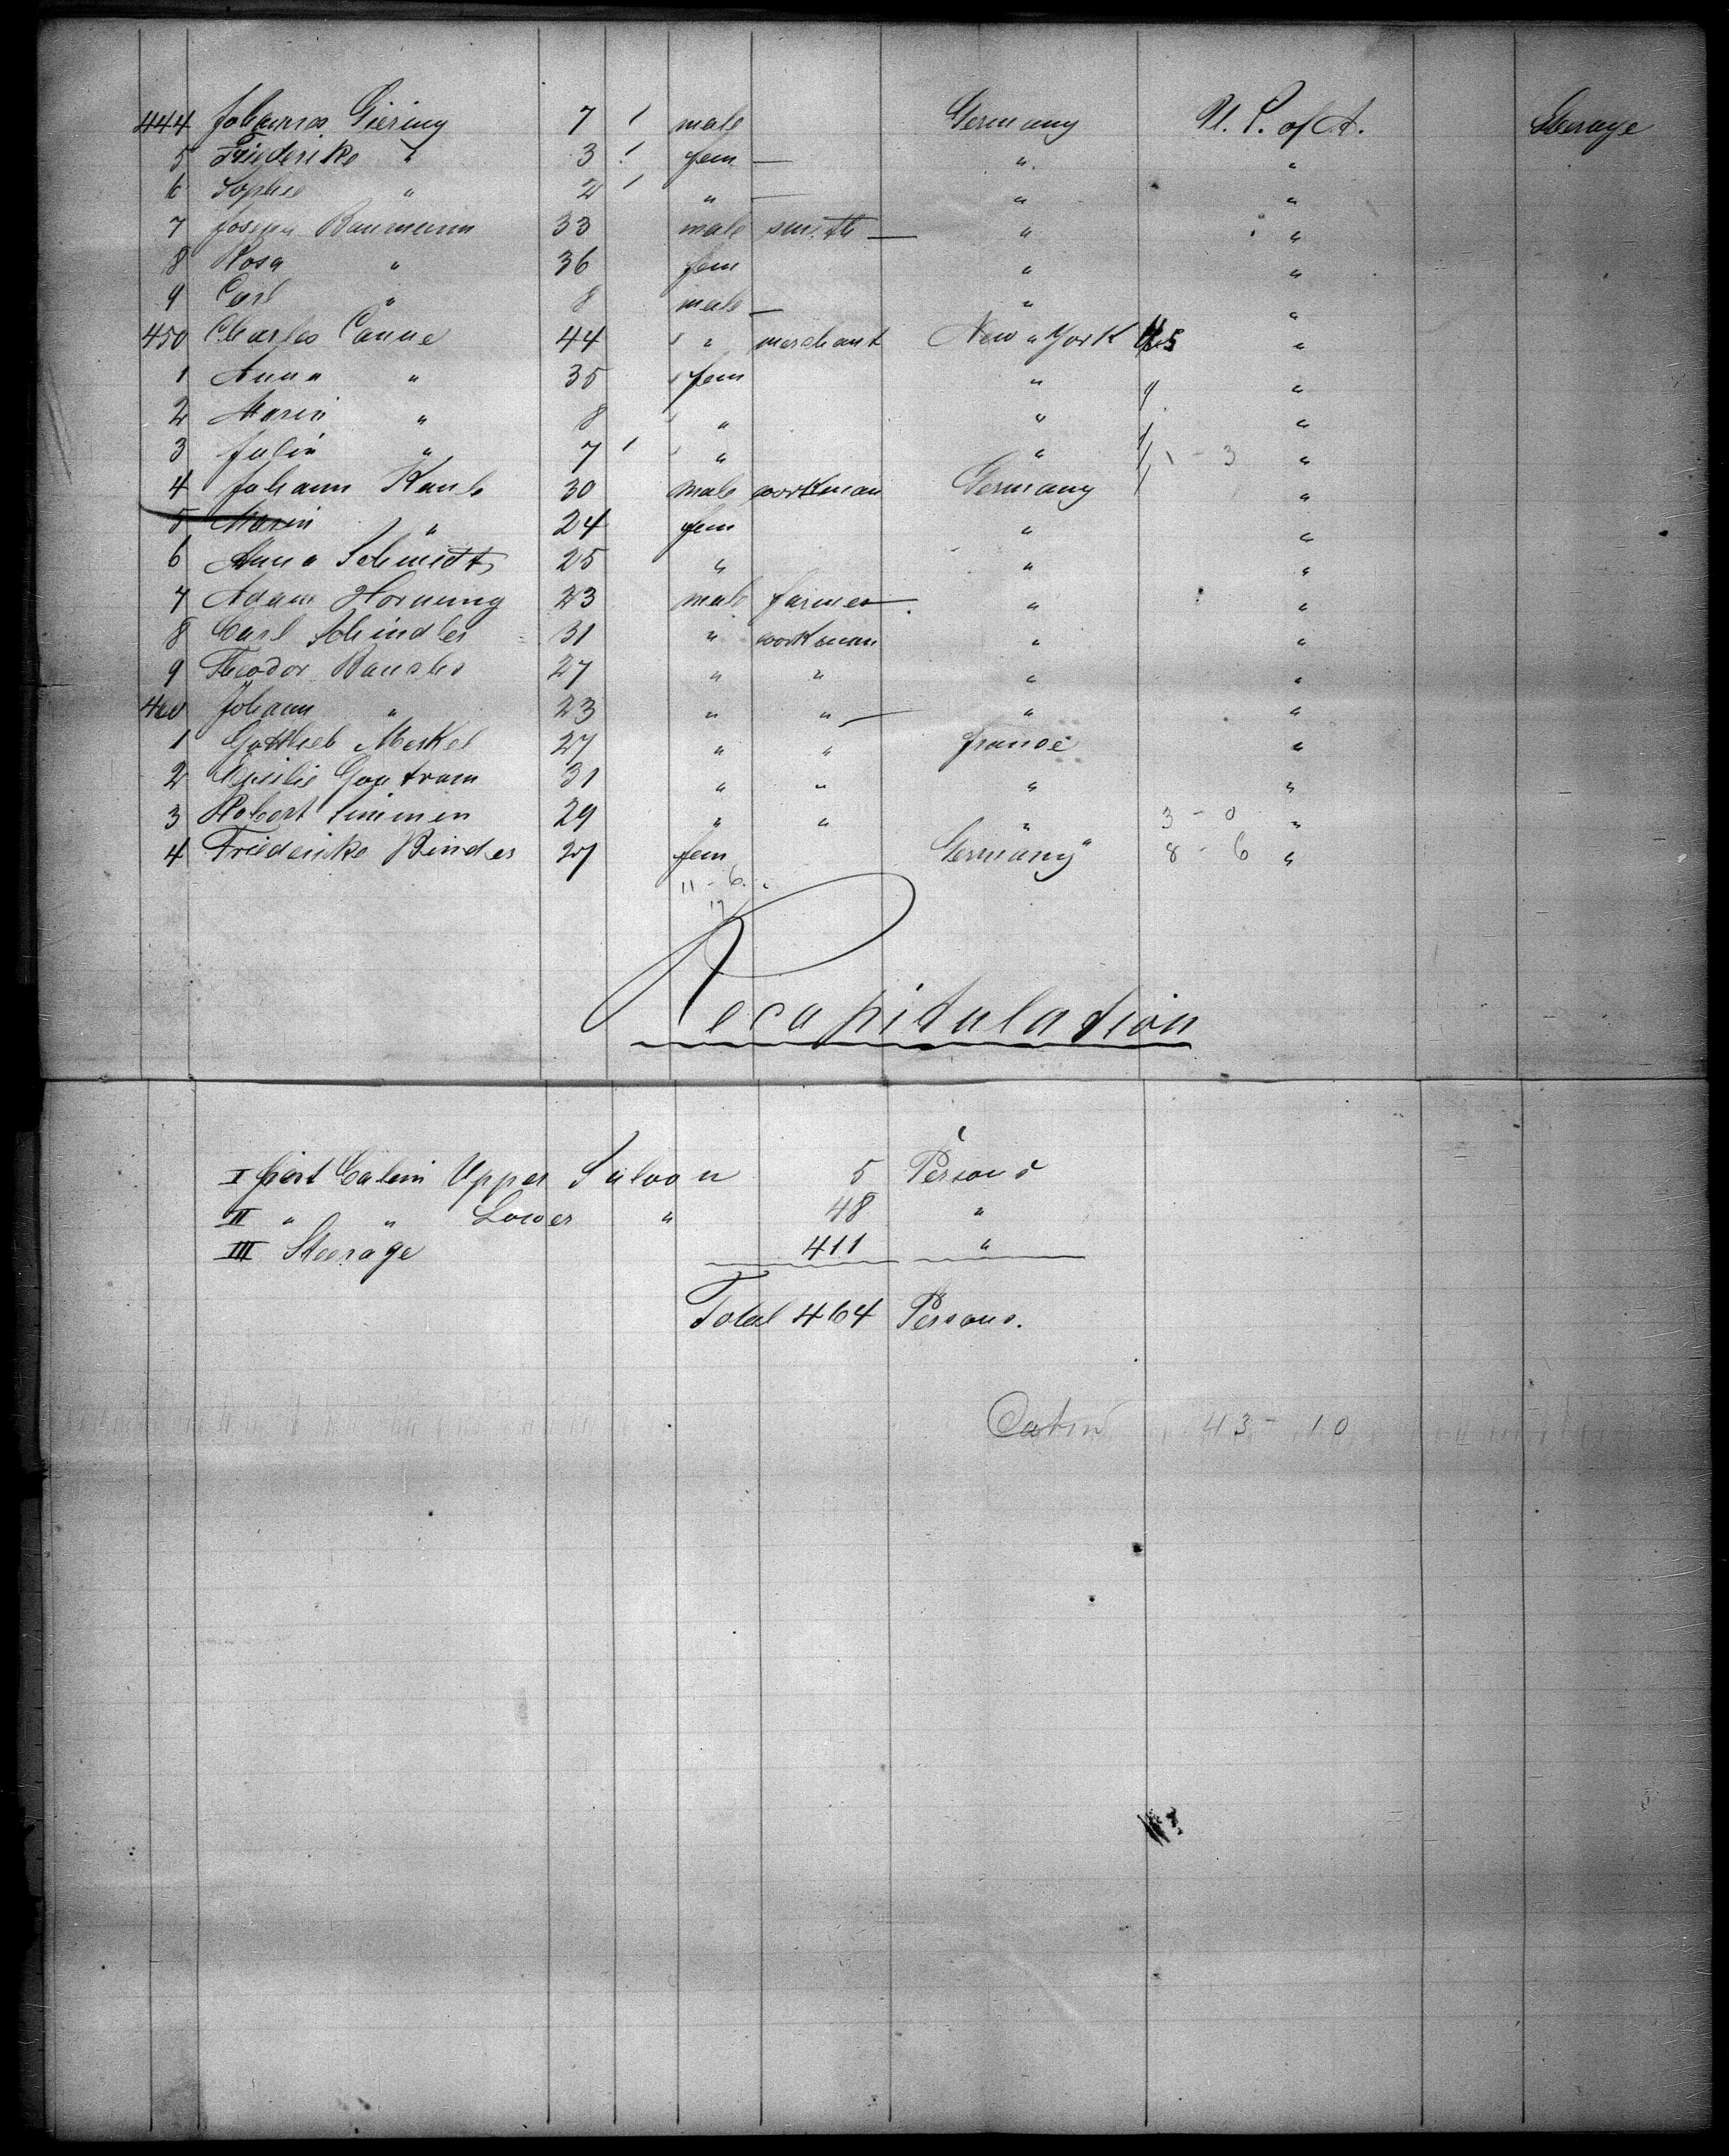 444 Johannes Giering 7 male Germany U. S. of A. Sterage
5 Friederike " 3 fem — " "
6 Sophie " 2 " — " "
7 Joseph Baumann 33 male smith — " "
8 Rosa " 36 fem " "
9 Carl " 8 male — " "
450 Charles Canne 44 " merchant New York US "
1 Anna " 35 fem " "
2 Marie " 8 " " "
3 Julie " 7 " " 1 - 3 "
4 Johann Kaul 30 male workman Germany "
5 Marie " 24 fem " "
6 Anna Schmidt 25 " " "
7 Adam Hornung 23 male farmer " "
8 Carl Schindler 31 " workman " "
9 Theodor 27 " " " "
460 Johann " 23 " " — " "
1 Gottlieb Merkel 27 " " France "
2 Gontram 31 " " " "
3 Robert Simmen 29 " " " 3 - 0 "
4 Friederike Binder 27 fem Germany 8 - 6 "
11 - 6
17
Recapitulation
I first Cabin Upper Saloon 5 Persons
II " " Lower " 48 "
III Steerage 411 "
Total 464 Persons.
Cabin 43 - 10